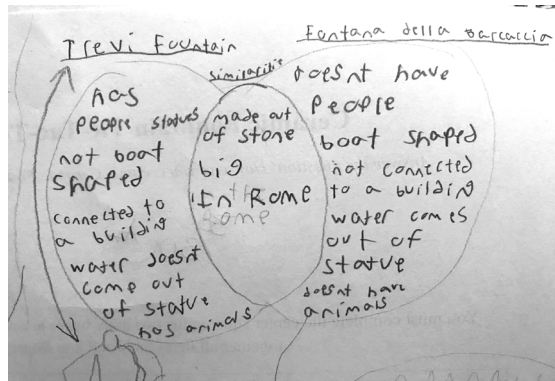 Trevi Fountain
Fontana della Barcaccia
similarities
has
people statues
not boat
shaped
connected to
a building
water doesnt
come out
of statue
has animals
made out
of stone
big
In Rome
doesnt have
people
boat shaped
not connected
to a building
water comes
out of
statue
doesnt have
animals